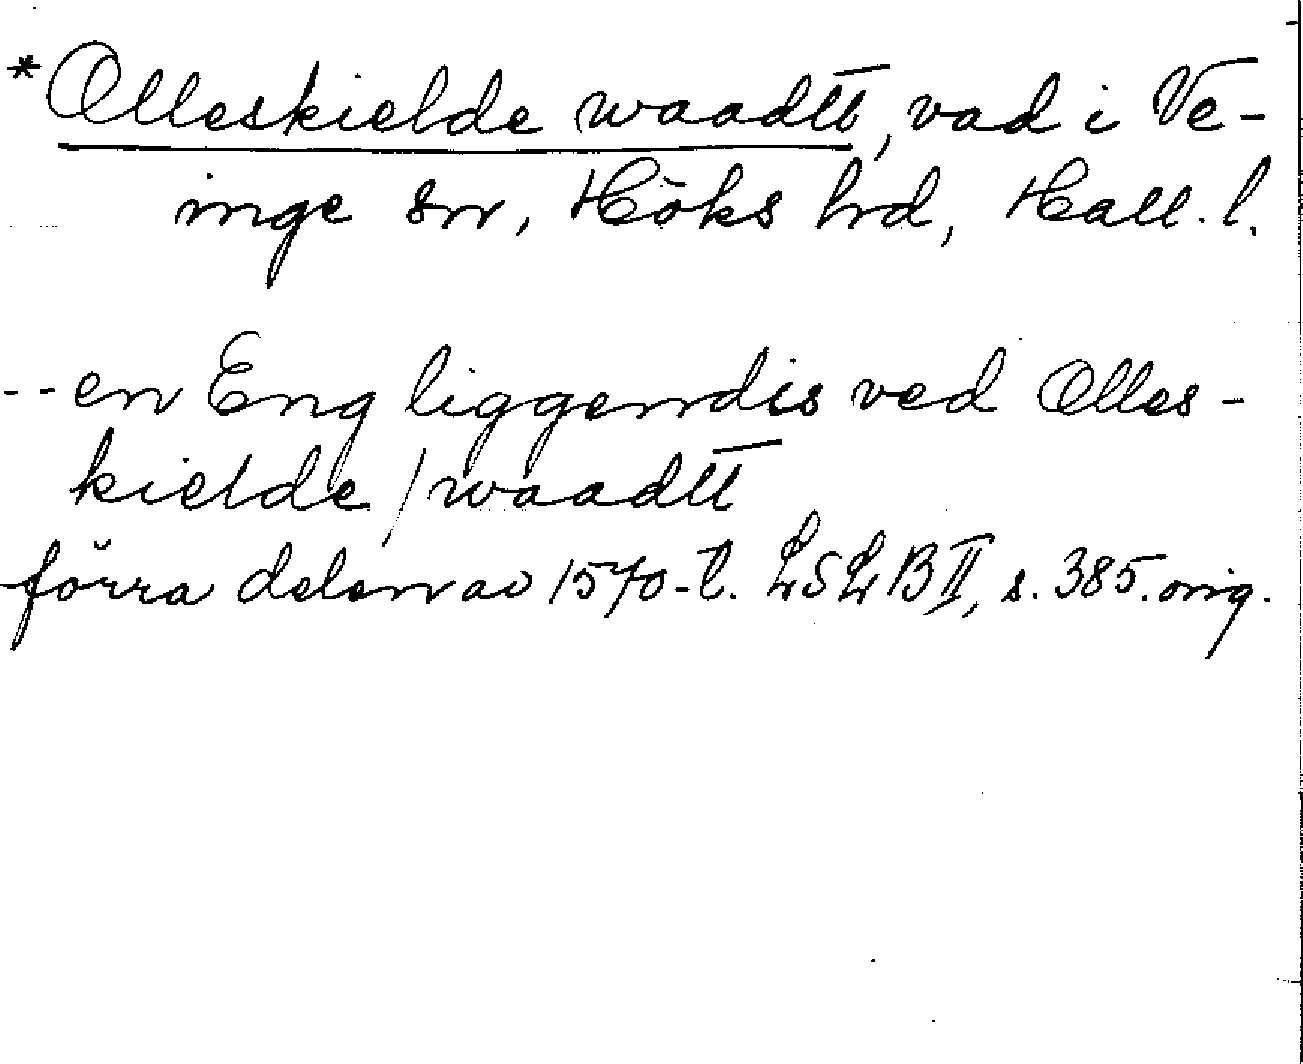 *Olleskielde waadtt, vad i Ve-
inge sn, Höks hrd, Hall. l.
-- en Eng liggendis ved Olles-
kielde / waadtt
förra delen av 1570-t. LSLB II, s. 385. orig.